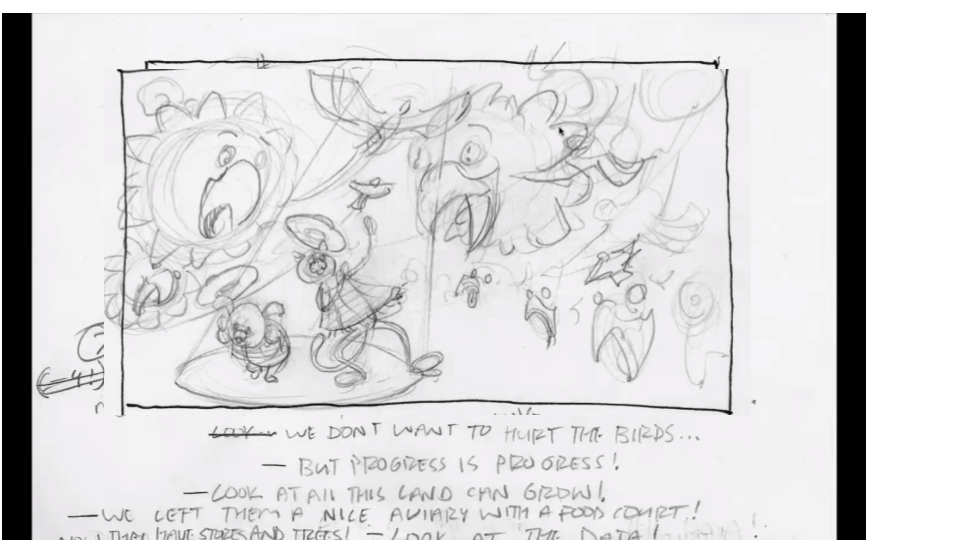 WE DON'T WANT TO HURT THE BIRDS...
— BUT PROGRESS IS PROGRESS!
— LOOK AT ALL THIS LAND CAN GROW!
— WE LEFT THEM A NICE AVIARY WITH A FOOD COURT!
NOW THEY HAVE STORES AND TREES! — LOOK AT THE DATA!